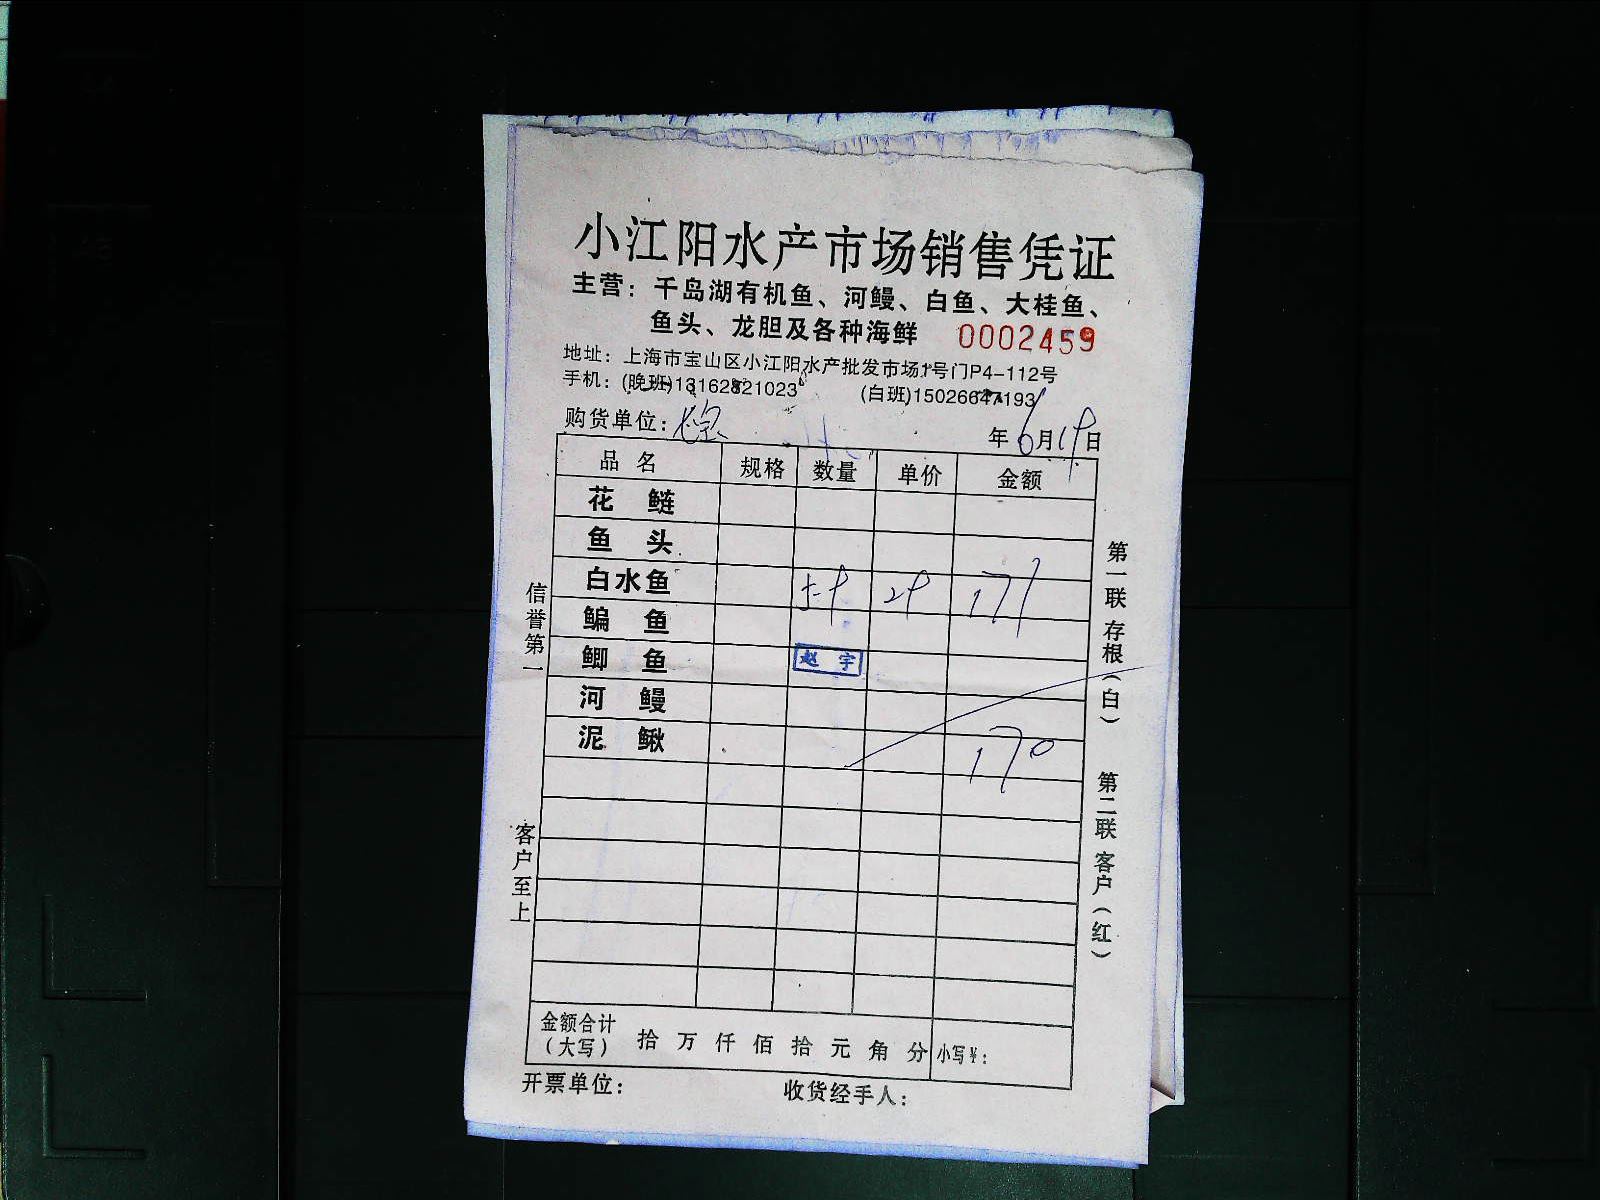 小江阳水产市场销售凭证
主营：千岛湖有机鱼、河鳗、白鱼、大桂鱼、
鱼头、龙胆及各种海鲜 0002459
地址：上海市宝山区小江阳水产批发市场1号门P4-112号
手机：(晚班)13162821023 (白班)15026647193
购货单位： 年6月19日
品名 规格 数量 单价 金额
花鲢
鱼头
白水鱼 29 171
鳊鱼
鲫鱼 赵宇
河鳗
泥鳅 170
金额合计（大写） 拾万仟佰拾元角分 小写¥：
开票单位： 收货经手人：
信誉第一
客户至上
第一联 存根（白）
第二联 客户（红）